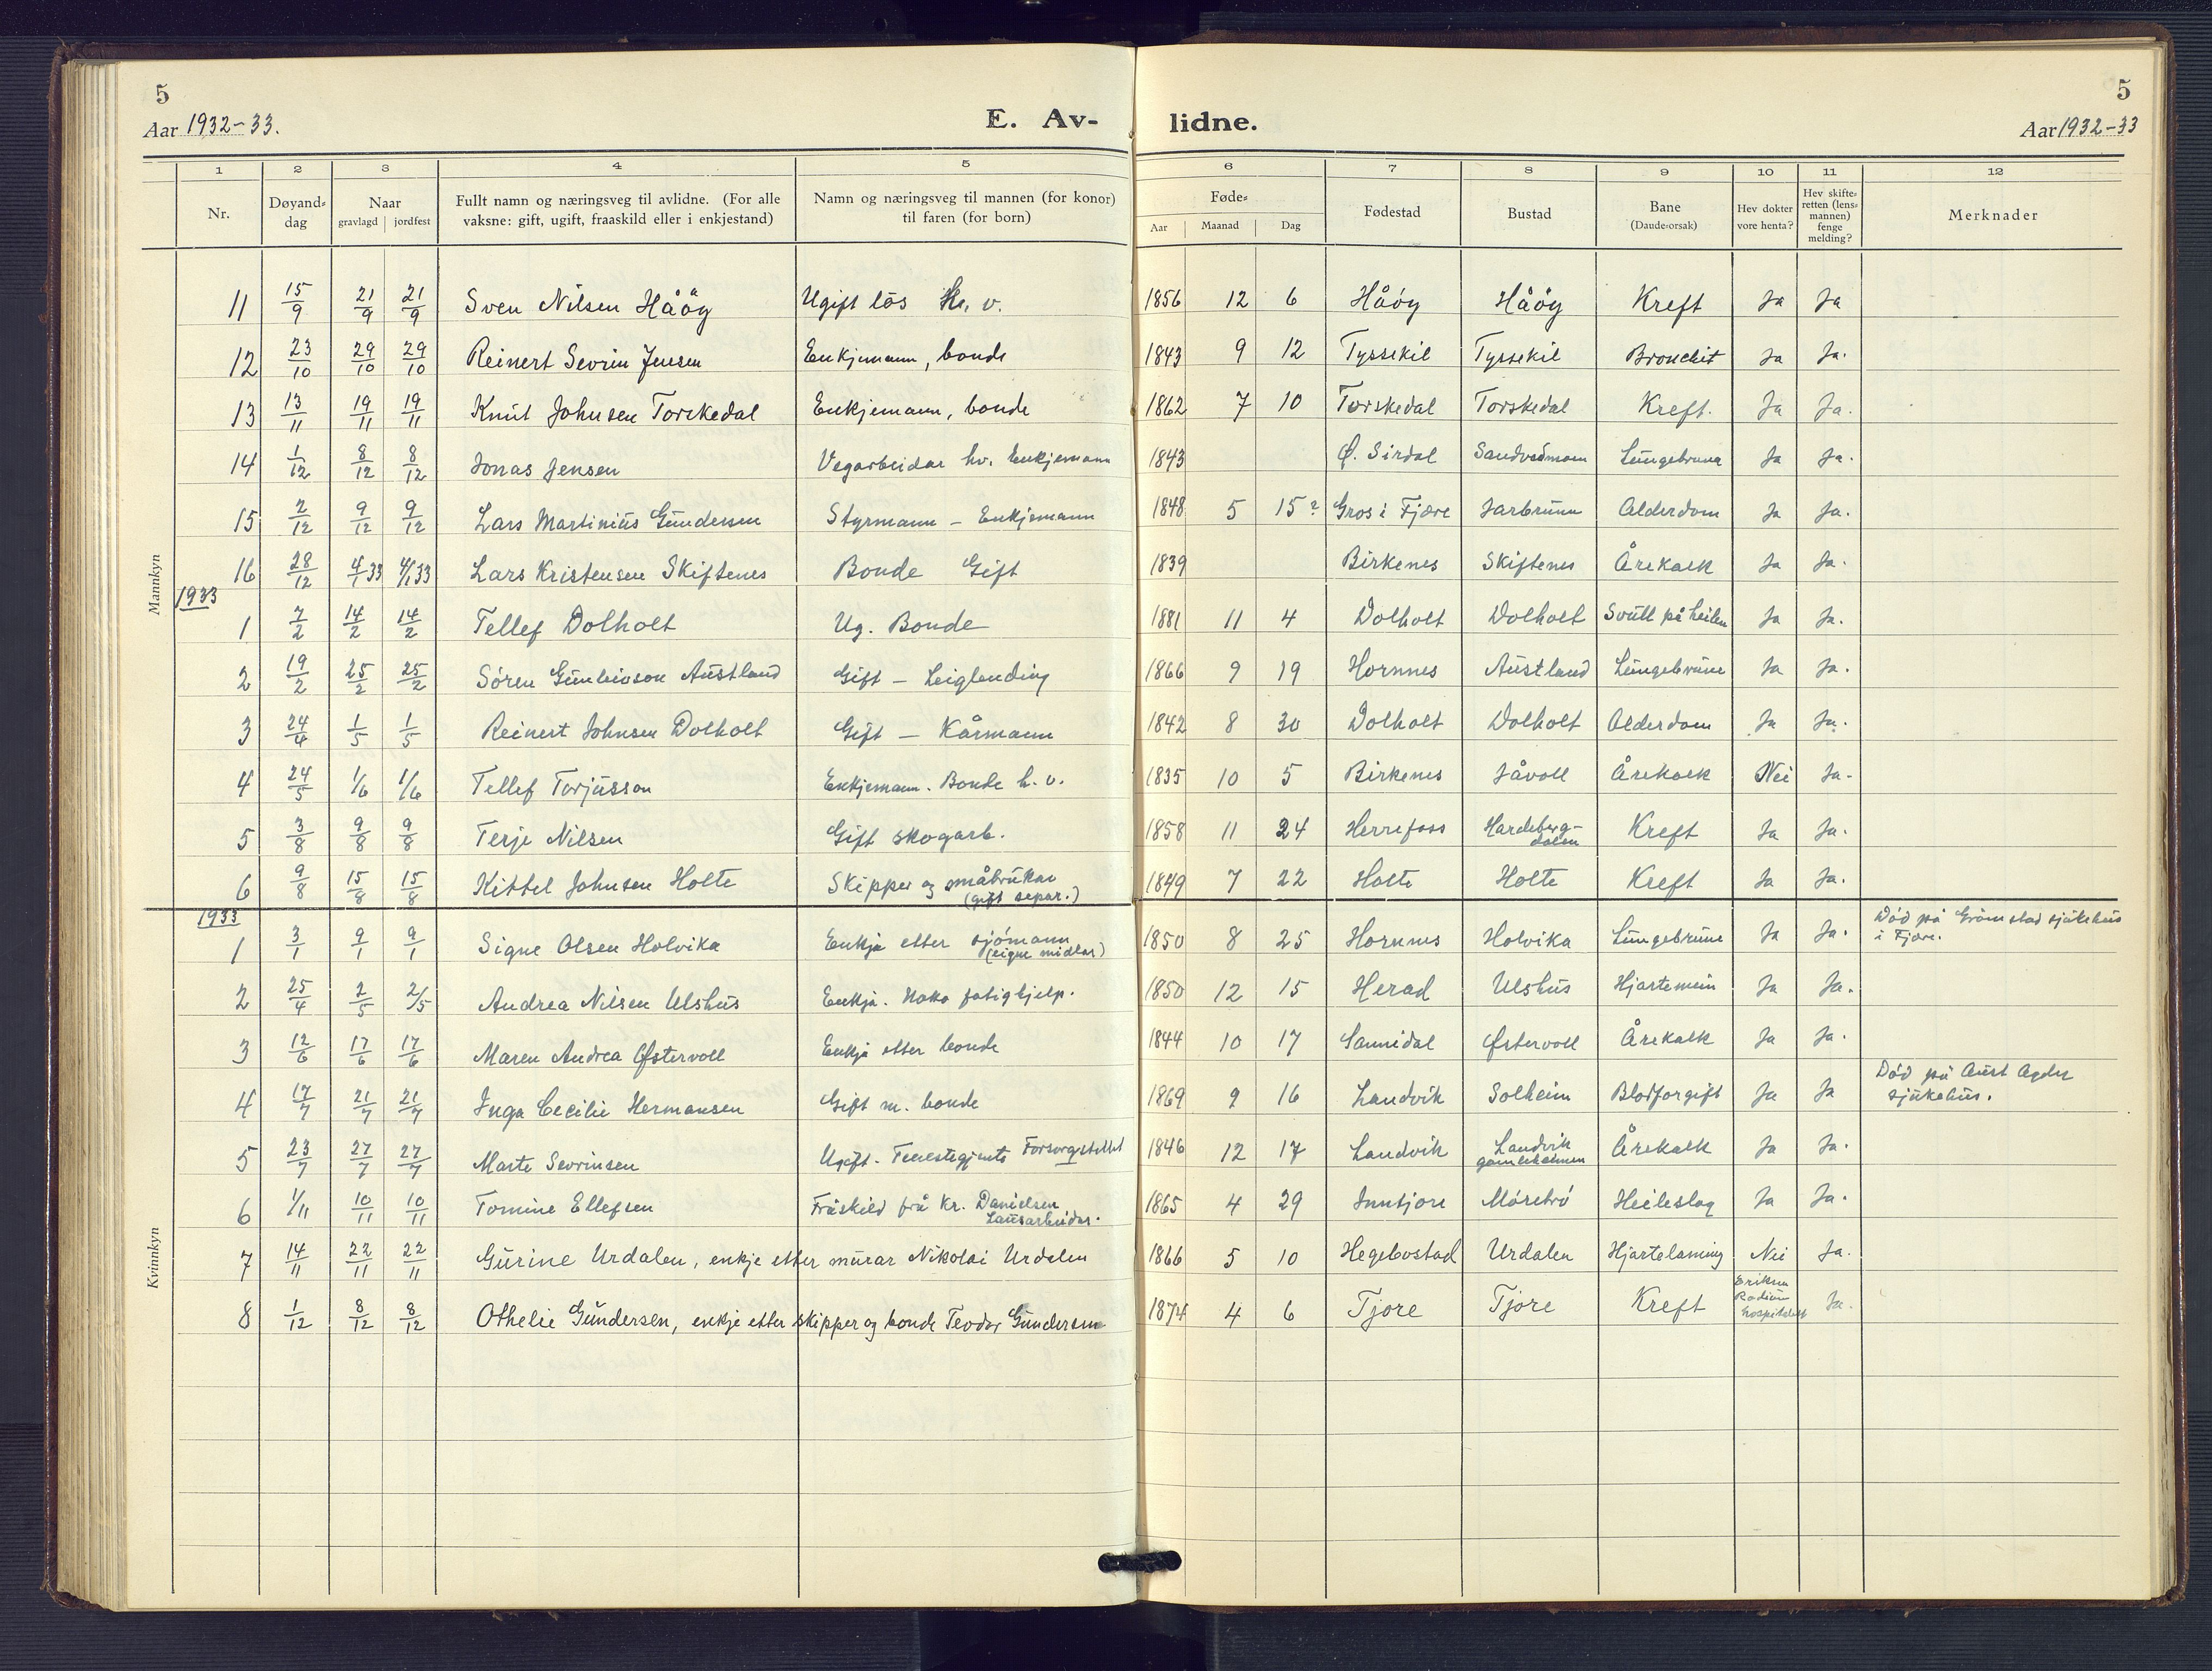 5
Aar 1932-33.
E. Av-
lidne.
5
Aar 1932-33
1 2 3 4 5 6 7 8 9 10 11 12
Nr.
Døyand-dag
Naar
gravlagd jordfest
Fullt namn og næringsveg til avlidne. (For alle
vaksne: gift, ugift, fraaskild eller i enkjestand)
Namn og næringsveg til mannen (for konor)
til faren (for born)
Føde-
Aar Maanad Dag
Fødestad
Bustad
Bane
(Daude-orsak)
Hev dokter
vore henta?
Hev skifte-
retten (lens-
mannen)
fenge
melding?
Merknader
Mannkyn
11 15/9 21/9 21/9 Sven Nilsen Håög Ugift lös h. v. 1856 12 6 Håög Håög Kreft Ja Ja
12 23/10 29/10 29/10 Reinert Sevrin Jensen Enkjemann, bonde 1843 9 12 Tyssekil Tyssekil Bronchit Ja Ja.
13 13/11 19/11 19/11 Knut Johnsen Torskedal Enkjemann, bonde 1862 7 10 Torskedal Torskedal Kreft. Ja Ja.
14 1/12 8/12 8/12 Jonas Jensen Vegarbeidar hv. Enkjemann 1843 Ø. Sirdal Ja Ja.
15 2/12 9/12 9/12 Lars Martinius Gundersen Styrmann - Enkjemann 1848 5 15? Gros i Fjære Alderdom Ja Ja.
16 28/12 4/1 33 4/1 33 Lars Kristensen Skiftenes Bonde Gift 1839 Birkenes Skiftenes Årekalk Ja Ja.
1933
1 7/2 14/2 14/2 Tellef Dolholt Ug. Bonde 1881 11 4 Dolholt Dolholt Svull på heilen Ja Ja.
2 19/2 25/2 25/2 Søren Gunleivson Austland Gift - Leiglending 1866 9 19 Hornnes Austland Lungebrune Ja Ja.
3 24/4 1/5 1/5 Reinert Johnsen Dolholt Gift - Kårmann 1842 8 30 Dolholt Dolholt Alderdom Ja Ja.
4 24/5 1/6 1/6 Tellef Torjusson Enkjemann. Bonde h. v. 1835 10 5 Birkenes Jåvoll Årekalk Nei Ja-
5 3/8 9/8 9/8 Terje Nilsen Gift skogarb. 1858 11 24 Herrefoss Hardeberg-
dalen Kreft Ja Ja.
6 9/8 15/8 15/8 Kittel Johnsen Holte Skipper og småbrukar
(gift separ.) 1849 7 22 Holte Holte Kreft Ja Ja.
Kvinnkyn
1933
1 3/1 9/1 9/1 Signe Olsen Holvika Enkja etter sjömann
(eigne midlar) 1850 8 25 Hornnes Holvika Lungebrune Ja Ja. Död på Grimstad sjukehus
i Fjære.
2 25/4 2/5 2/5 Andrea Nilsen Ulshus Enkja. Noko fatighjelp. 1850 12 15 Herad Ulshus Hjartemein Ja Ja.
3 12/6 17/6 17/6 Maren Andrea Østervoll Enkja etter bonde 1844 10 17 Sannidal Østervoll Årekalk Ja Ja.
4 17/7 21/7 21/7 Inga Cecilie Hermansen Gift m. bonde 1869 9 16 Landvik Solheim Blodforgift Ja Ja Död på Aust Agder
sjukehus.
5 23/7 27/7 27/7 Marte Sevrinsen Ugift. Tenestegjente Forsorgstellet 1846 12 17 Landvik Landvik
gamleheimen Årekalk Ja Ja.
6 1/11 10/11 10/11 Tomine Ellefsen Fråskild frå Kr. Danielsen
Lausarbeidar. 1865 4 29 Inntjore Mörebrö Heileslag Ja Ja.
7 14/11 22/11 22/11 Gurine Urdalen, enkje etter murar Nikolai Urdalen 1866 5 10 Hegebostad Urdalen Hjartelaming Nei Ja.
8 1/12 8/12 8/12 Othelie Gundersen, enkje etter skipper og bonde Teodor Gundersen 1874 4 6 Tjore Tjore Kreft
Radium
hospitalet Ja.